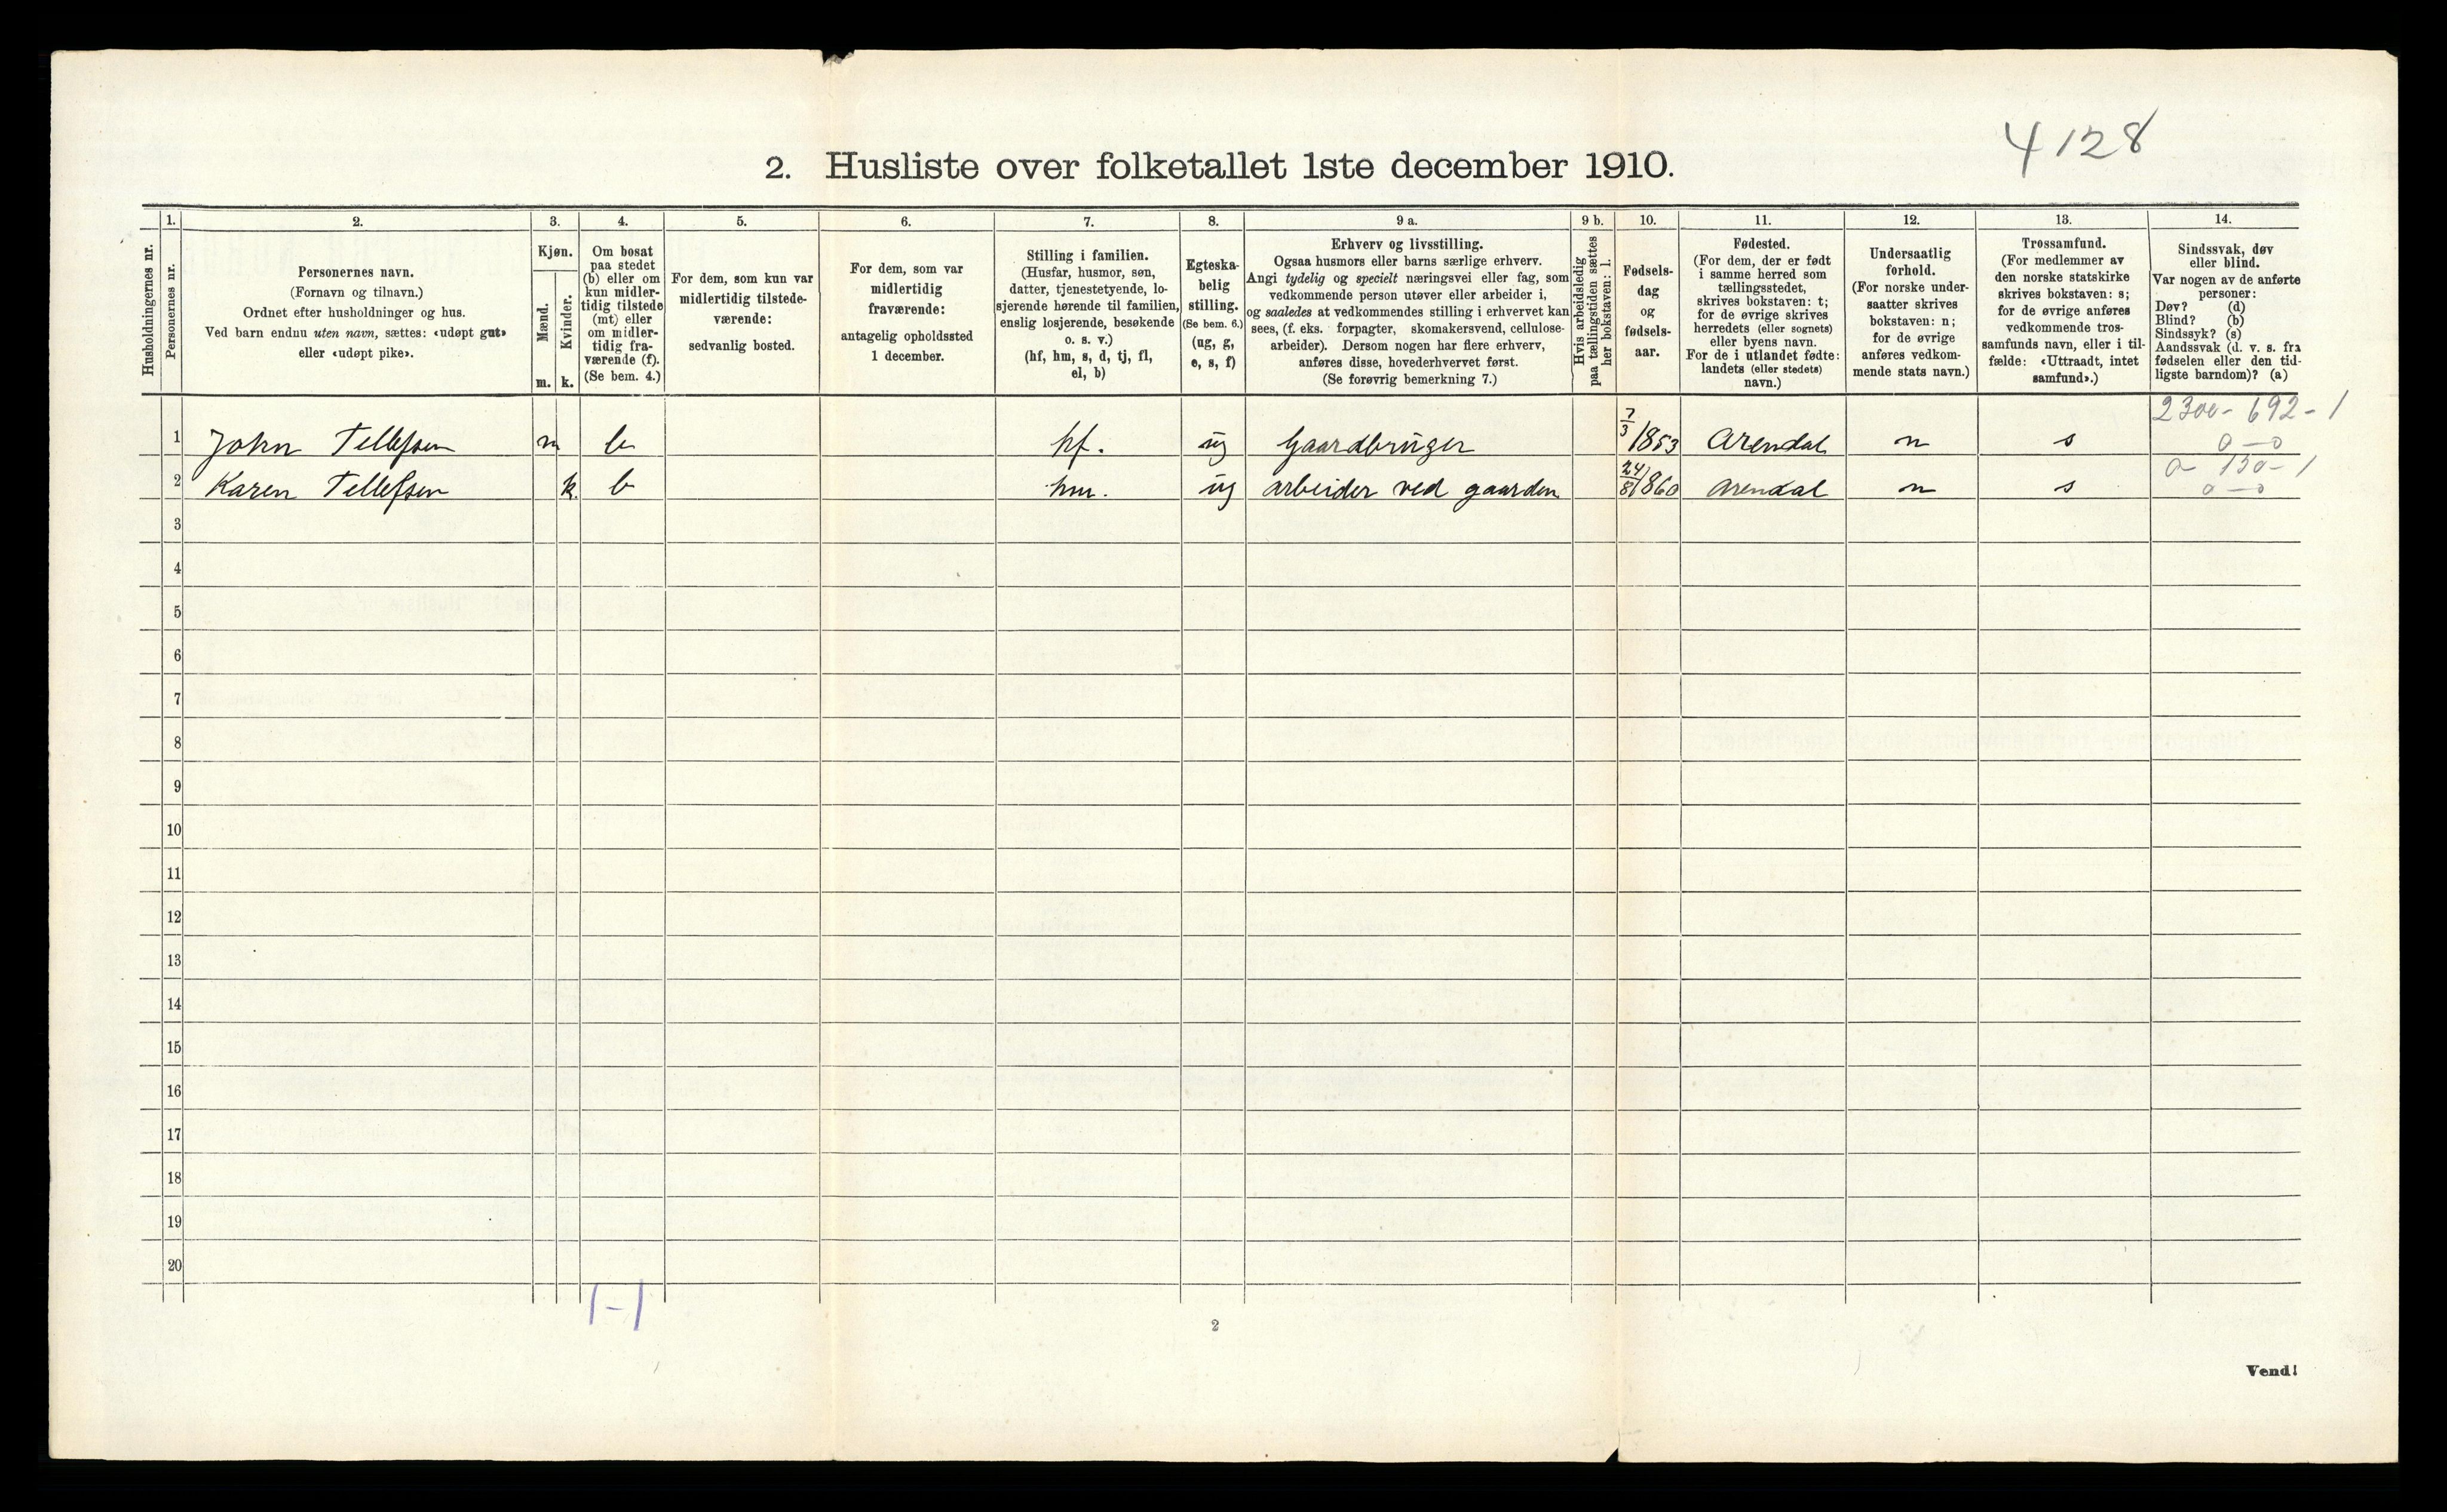 4128
2. Husliste over folketallet 1ste december 1910.
Husholdningernes nr.
1.
Personernes nr.
2.
Personernes navn.
(Fornavn og tilnavn.)
Ordnet efter husholdninger og hus.
Ved barn endnu uten navn, sættes: «udøpt gut»
eller «udøpt pike».
3.
Kjøn.
Mænd.
Kvinder.
m.
k.
4.
Om bosat
paa stedet
(b) eller om
kun midler-
tidig tilstede
(mt) eller
om midler-
tidig fra-
værende (f).
(Se bem. 4.)
5.
For dem, som kun var
midlertidig tilstede-
værende:
sedvanlig bosted.
6.
For dem, som var
midlertidig
fraværende:
antagelig opholdssted
1 december.
7.
Stilling i familien.
(Husfar, husmor, søn,
datter, tjenestetyende, lo-
sjerende hørende til familien,
enslig losjerende, besøkende
o. s. v.)
(hf, hm, s, d, tj, fl,
el, b)
8.
Egteska-
belig
stilling.
(Se bem. 6.)
(ug, g,
e, s, f)
9 a.
Erhverv og livsstilling.
Ogsaa husmors eller barns særlige erhverv.
Angi tydelig og specielt næringsvei eller fag, som
vedkommende person utøver eller arbeider i,
og saaledes at vedkommendes stilling i erhvervet kan
sees, (f. eks. forpagter, skomakersvend, cellulose-
arbeider). Dersom nogen har flere erhverv,
anføres disse, hovederhvervet først.
(Se forøvrig bemerkning 7.)
9 b.
Hvis arbeidsledig
paa tællingstiden sættes
her bokstaven: l.
10.
Fødsels-
dag
og
fødsels-
aar.
11.
Fødested.
(For dem, der er født
i samme herred som
tællingsstedet,
skrives bokstaven: t;
for de øvrige skrives
herredets (eller sognets)
eller byens navn.
For de i utlandet fødte:
landets (eller stedets)
navn.)
12.
Undersaatlig
forhold.
(For norske under-
saatter skrives
bokstaven: n;
for de øvrige
anføres vedkom-
mende stats navn.)
13.
Trossamfund.
(For medlemmer av
den norske statskirke
skrives bokstaven: s;
for de øvrige anføres
vedkommende tros-
samfunds navn, eller i til-
fælde: «Uttraadt, intet
samfund».)
14.
Sindssvak, døv
eller blind.
Var nogen av de anførte
personer:
Døv? (d)
Blind? (b)
Sindssyk? (s)
Aandssvak (d. v. s. fra
fødselen eller den tid-
ligste barndom)? (a)
2300 - 692 - 1
1 John Tellefsen m b hf. ug Gaardbruger 7/3 1853 Arendal n s 0 — 0
0 130 - 1
2 Karen Tellefsen k. b hm. ug arbeider ved gaarden 24/8 1860 Arendal n s 0 — 0
3
4
5
6
7
8
9
10
11
12
13
14
15
16
17
18
19
20
1 - 1
2
Vend!